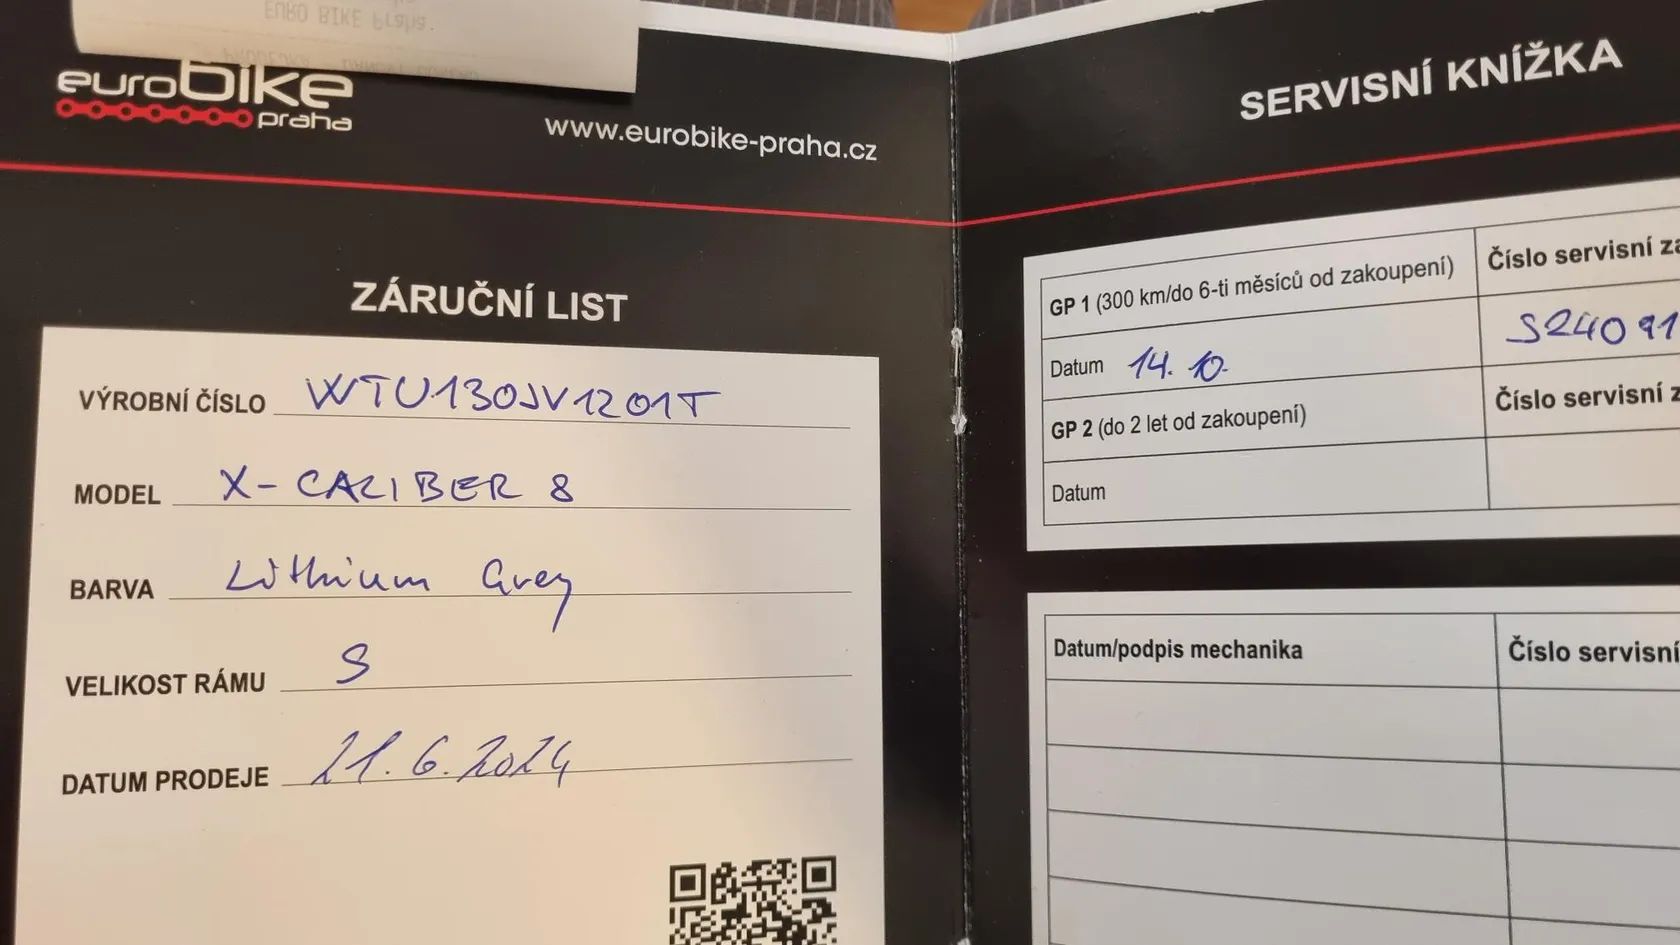 EURO BIKE Praha.
eurobike
praha
www.eurobike-praha.cz
ZÁRUČNÍ LIST
VÝROBNÍ ČÍSLO WTU130JV1201T
MODEL X-CALIBER 8
BARVA Lithium Grey
VELIKOST RÁMU S
DATUM PRODEJE 21.6.2024
SERVISNÍ KNÍŽKA
GP 1 (300 km/do 6-ti měsíců od zakoupení) Číslo servisní
Datum 14. 10. S24091
GP 2 (do 2 let od zakoupení) Číslo servisní
Datum
Datum/podpis mechanika Číslo servisní